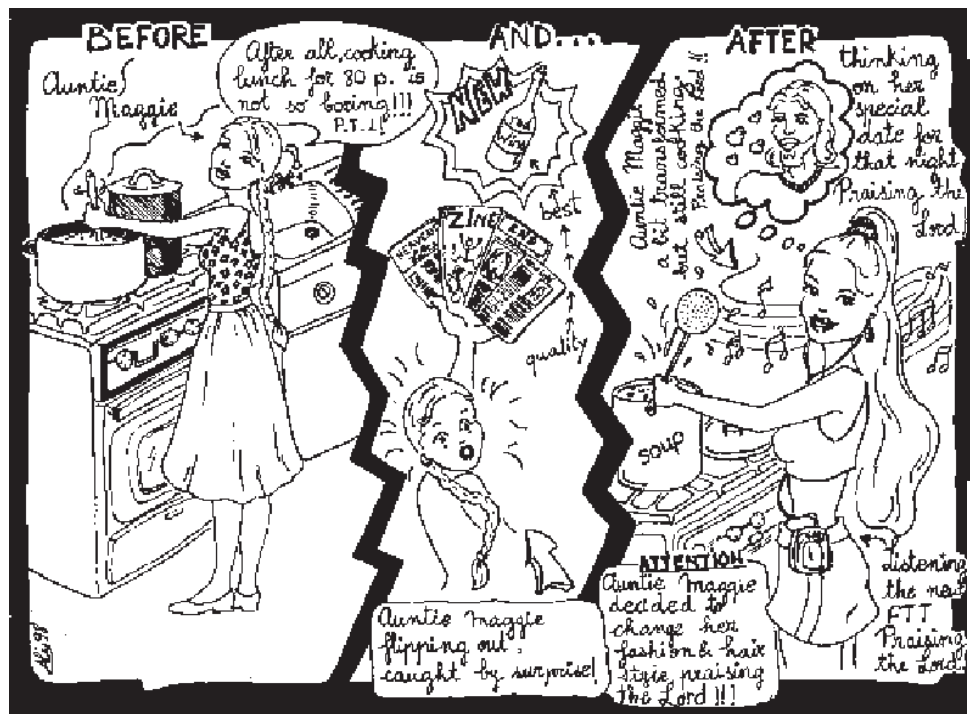 BEFORE
Auntie
Maggie
After all, cooking
lunch for 80 p. is
not so boring!!!
P.T.L!
AND...
NEW
best
quality
ZINE
END
Auntie Maggie
flipping out,
caught by surprise!
AFTER
Auntie Maggie
a bit transformed
but still cooking,
Praising the Lord!!
thinking
on her
special
date for
that night,
Praising the
Lord!
SOUP
ATTENTION
Auntie Maggie
decided to
change her
fashion & hair
style, praising
the Lord!!!
Listening
the new
FTT
Praising
the Lord!